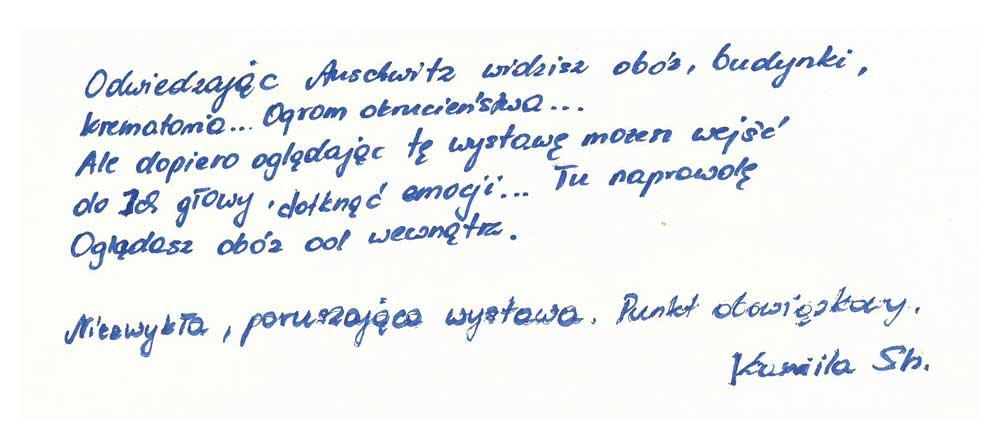 Odwiedzając Auschwitz widzisz obóz, budynki,
krematoria... Ogrom okrucieństwa...
Ale dopiero oglądając tę wystawę możesz wejść
do Ich głowy, dotknąć emocji... Tu naprawdę
Oglądasz obóz od wewnątrz.
Niezwykła, poruszająca wystawa. Punkt obowiązkowy.
Kamila Sh.